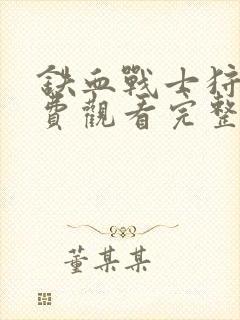 鐵血戰士狩
費觀看完整
董某某